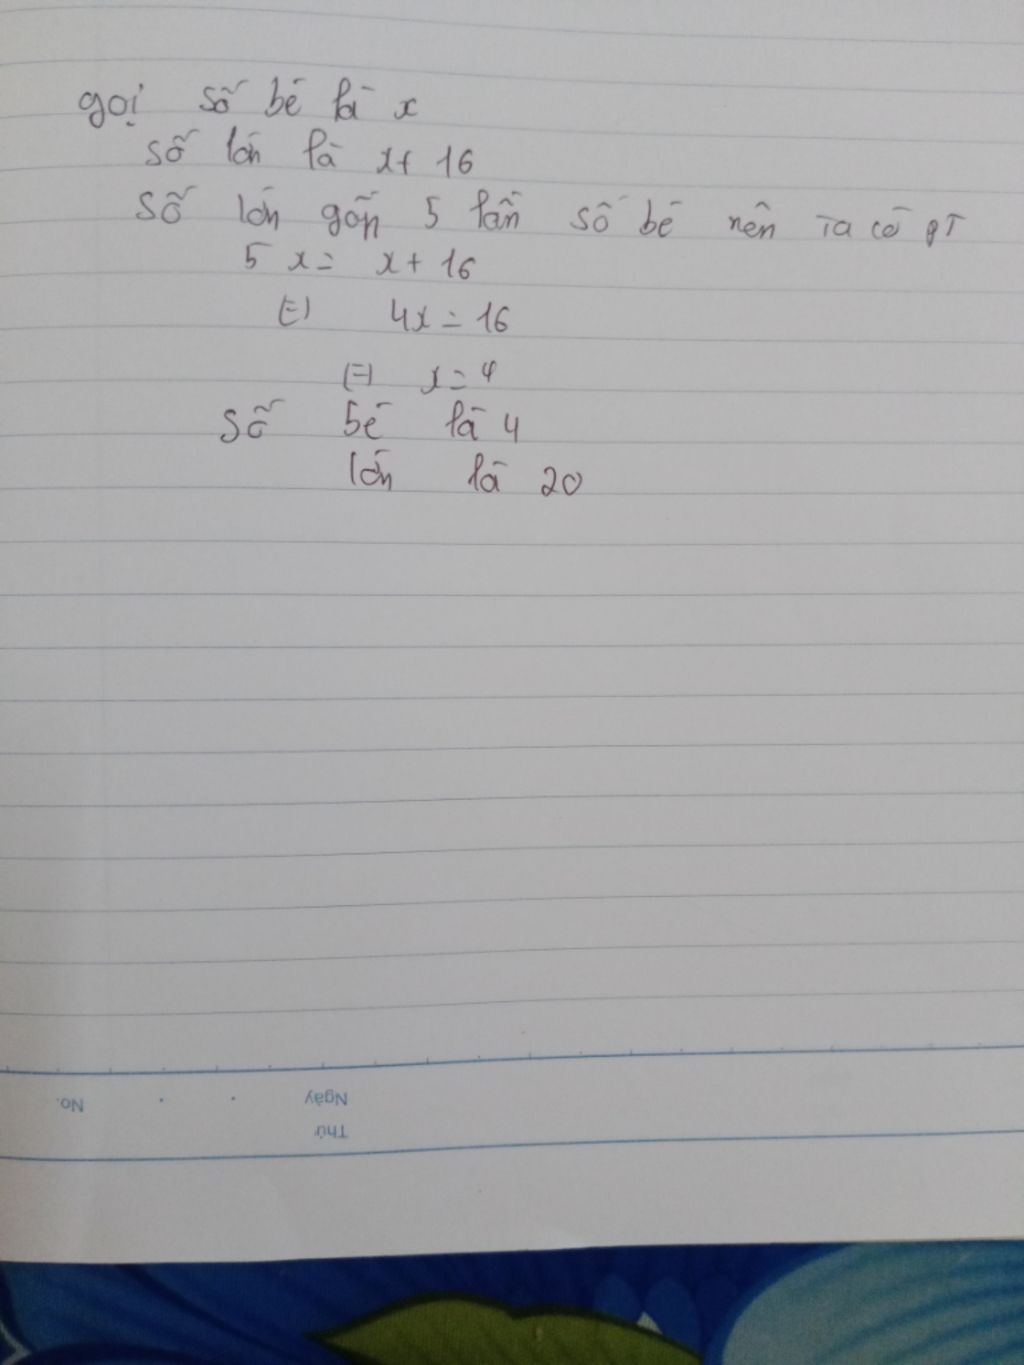 gọi số bé là x
số lớn là x+ 16
Số lớn gấp 5 lần số bé nên ta có PT
5 x = x + 16
(=) 4x = 16
(=) x = 4
Số bé là 4
lớn là 20
No.
Ngày
Thứ